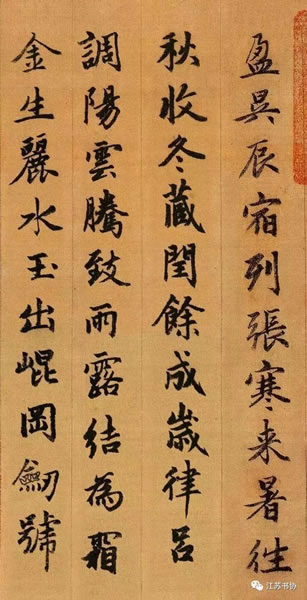 盈昃辰宿列張寒来暑往
秋收冬藏閏餘成歲律呂
調陽雲騰致雨露結為霜
金生麗水玉出崐岡劒號
江苏书协